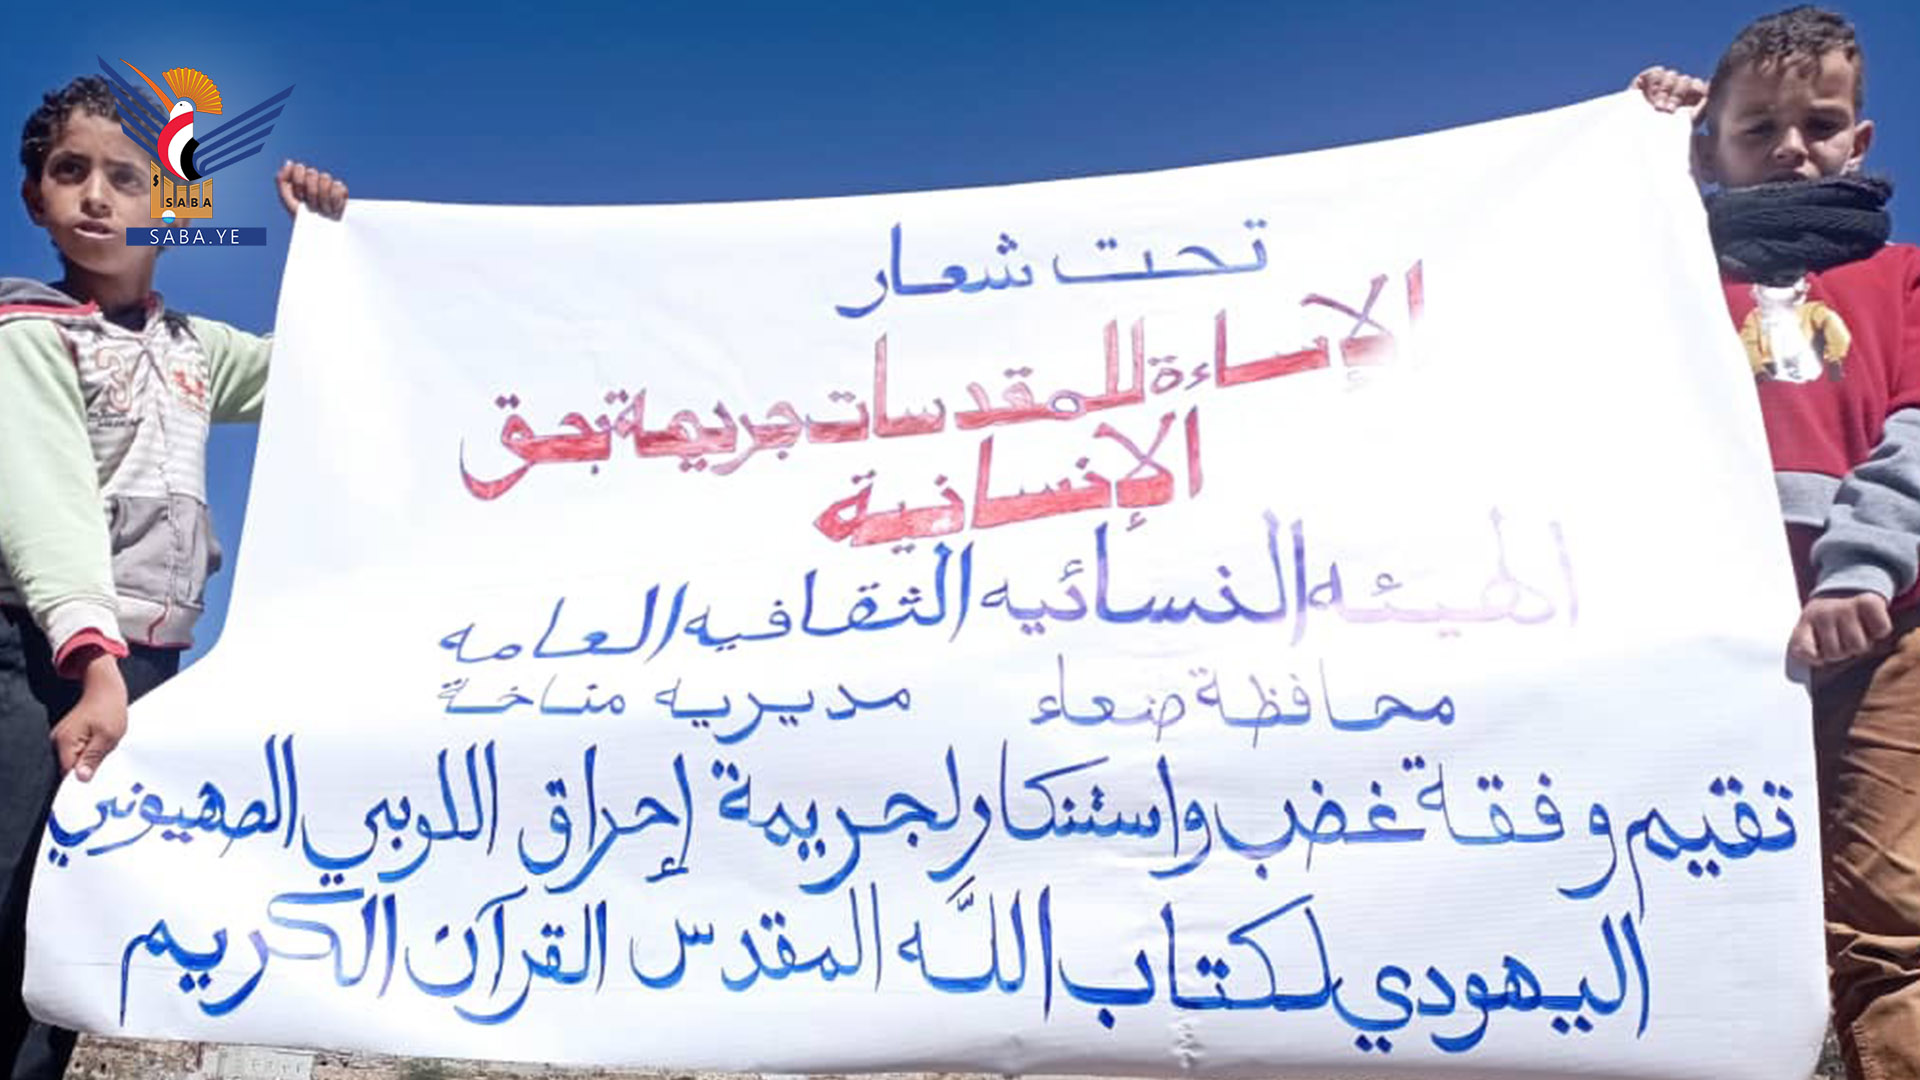 SABA
SABA.YE
تحت شعار
الإساءة للمقدسات جريمة بحق
الإنسانية
الهيئه النسائيه الثقافيه العامه
محافظة صنعاء مديريه مناخة
تقيم وقفة غضب واستنكار لجريمة إحراق اللوبي الصهيوني
اليهودي لكتاب اللَّه المقدس القرآن الكريم